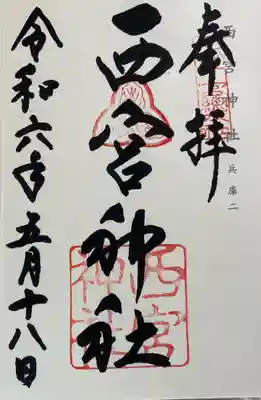 奉拝
西宮神社 兵庫二
西宮神社
西宮神社
令和六年五月十八日